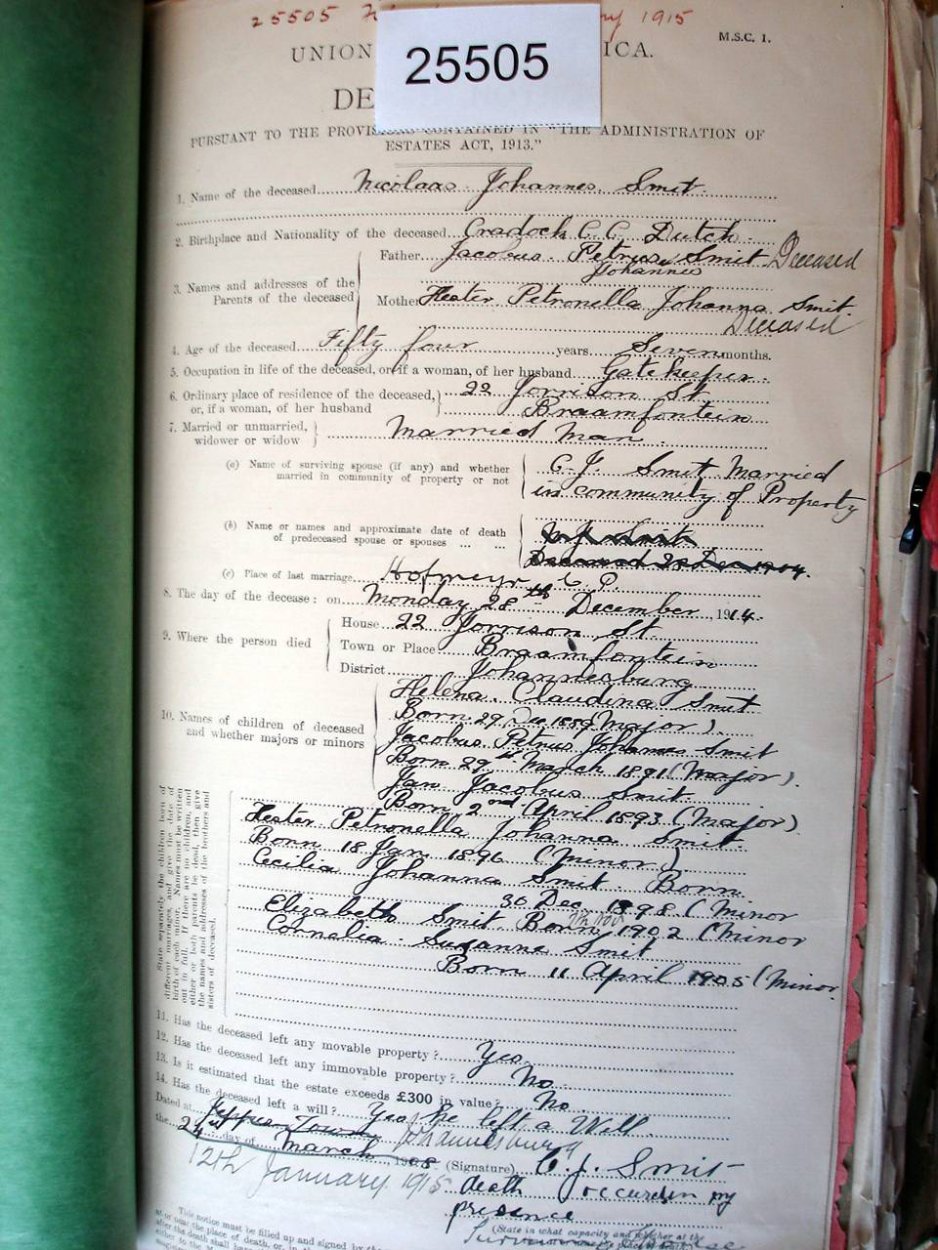 25505 1915
M.S.C. 1.
25505
UNION ICA.
DE
PURSUANT TO THE PROVISIONS CONTAINED IN "THE ADMINISTRATION OF
ESTATES ACT, 1913."
1. Name of the deceased Nicolaas Johannes Smit
2. Birthplace and Nationality of the deceased Cradock C.C. Dutch
3. Names and addresses of the Parents of the deceased
Father Jacobus Petrus Smit Deceased
Johannes
Mother Hester Petronella Johanna Smit
Deceased
4. Age of the deceased Fifty four years Seven months.
5. Occupation in life of the deceased, or if a woman, of her husband Gatekeeper
6. Ordinary place of residence of the deceased, 22 Jorrison St
or, if a woman, of her husband Braamfontein
7. Married or unmarried, widower or widow Married Man
(a) Name of surviving spouse (if any) and whether C. J. Smit Married
married in community of property or not in community of Property
(b) Name or names and approximate date of death
of predeceased spouse or spouses ... ... Deceased 28 Dec 1904.
(c) Place of last marriage Hofmeyr C.P.
8. The day of the decease: on Monday 28th December 1914.
9. Where the person died
House 22 Jorrison St.
Town or Place Braamfontein
District Johannesburg
10. Names of children of deceased
and whether majors or minors
Helena Claudina Smit
Born 29 Dec 1889 (Major)
Jacobus Petrus Johannes Smit
Born 29th March 1891 (Major)
Jan Jacobus Smit
Born 2nd April 1893 (Major)
Hester Petronella Johanna Smit
Born 18 Jan 1896 (Minor)
Cecilia Johanna Smit Born
30 Dec 1898 (Minor
Elizabeth Smit Born 1902 (Minor
Cornelia Susanna Smit
Born 11 April 1905 (Minor
State separately the children born of
different marriages, and give the date of
birth of each minor. Names must be written
out in full. If there are no children, and
either or both parents be dead, then give
the names and addresses of the brothers and
sisters of deceased.
11. Has the deceased left any movable property? Yes
12. Has the deceased left any immovable property? No
13. Is it estimated that the estate exceeds £300 in value? No
14. Has the deceased left a will? Yes he left a Will
Dated at Jeppes Town Johannesburg
the 24 day of March
12th January 1915 (Signature) C. J. Smit
death occured in my
presence
(State in what capacity and whether at the
This notice must be filled up and signed by the